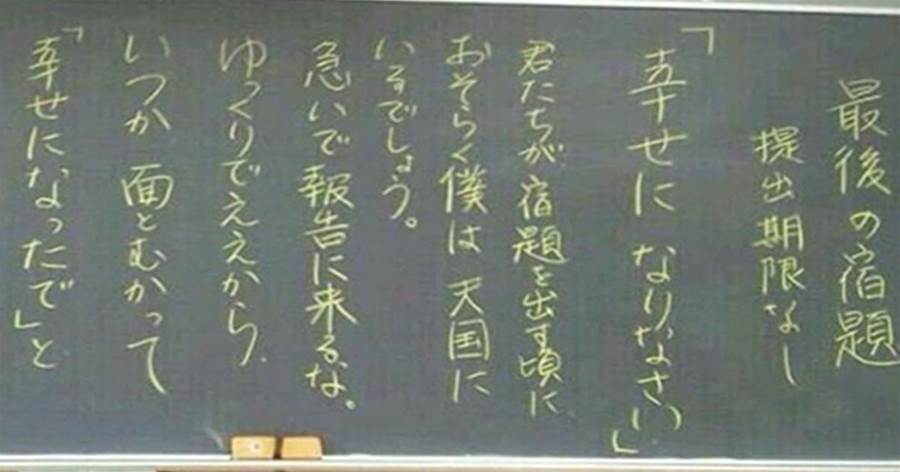 最後の宿題
提出期限なし
「幸せに なりなさい」
君たちが宿題を出す頃に
おそらく僕は 天国に
いるでしょう。
急いで報告に来るな。
ゆっくりでええから、
いつか 面とむかって
「幸せになったで」と